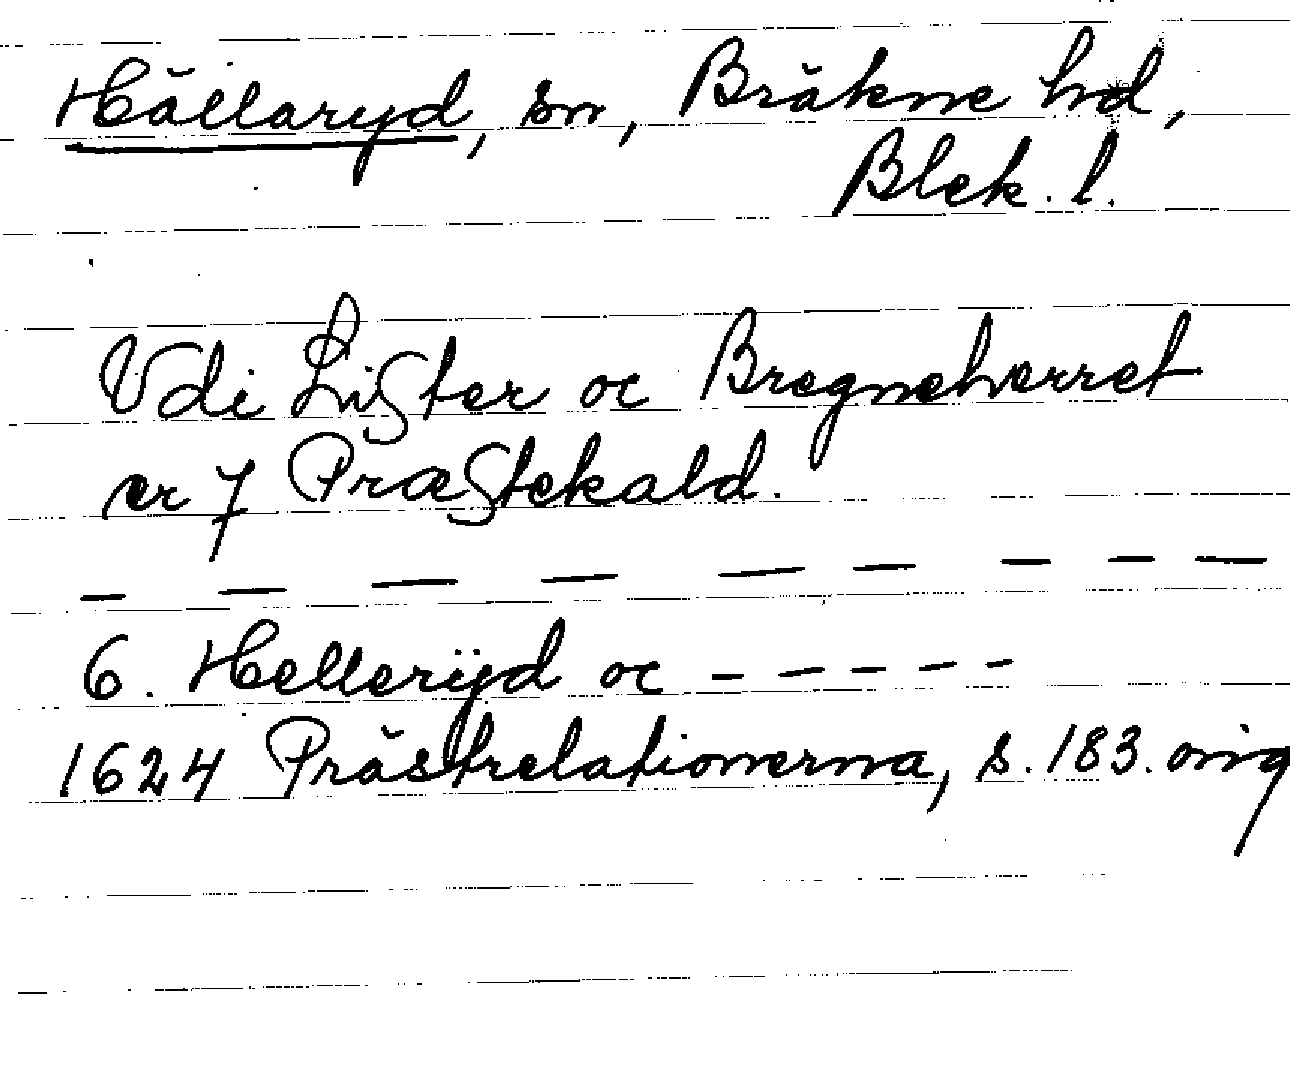 Hällaryd, sn, Bräkne hd,
Blek. l.
Vdi Lister oc Bregneherret
er 7 Præstekald.
— — — — — — — — —
6. Hellerÿd oc - - - - -
1624 Prästrelationerna, s. 183. orig